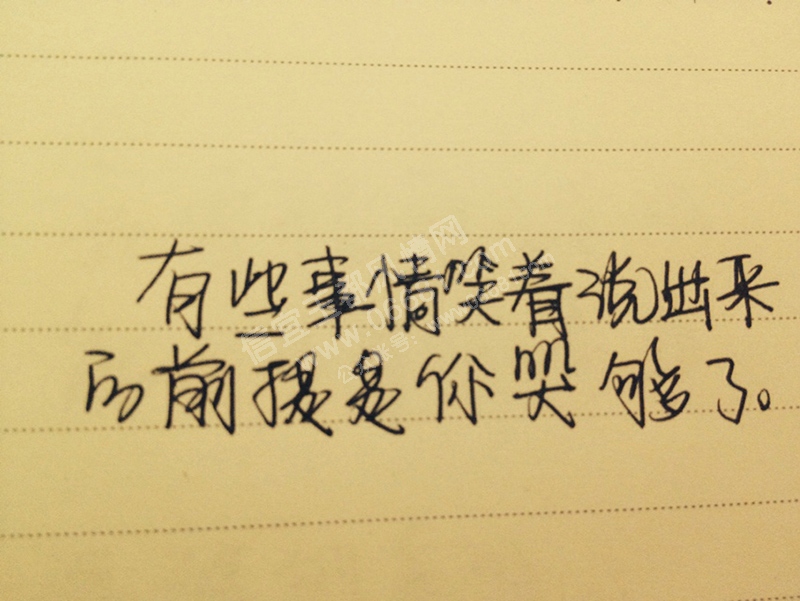 有些事情笑着说出来
的前提是你哭够了。